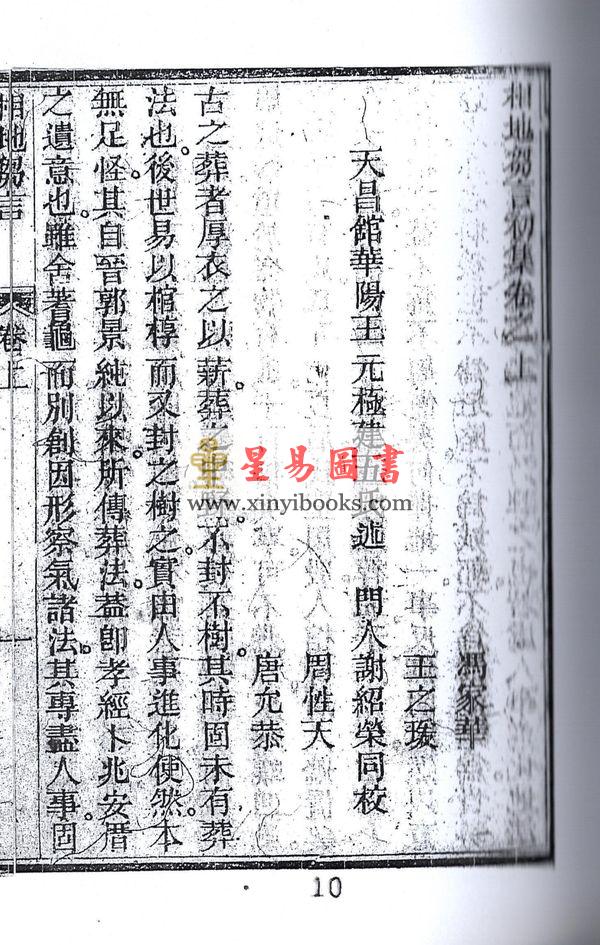 相地芻言初集卷之一上
馮家華
王之瑗
天昌館華陽王元極建五氏述 門人謝紹榮同校
周性天
唐允恭
古之葬者厚衣之以薪葬之不封不樹其時固未有葬
法也後世易以棺椁而又封之樹之實由人事進化使然本
無足怪其自晉郭景純以來所傳葬法蓋卽孝經卜兆安厝
之遺意也雖舍蓍龜而別創因形察氣諸法其專盡人事固
相地芻言
卷上
一
星易圖書
www.xinyibooks.com
10